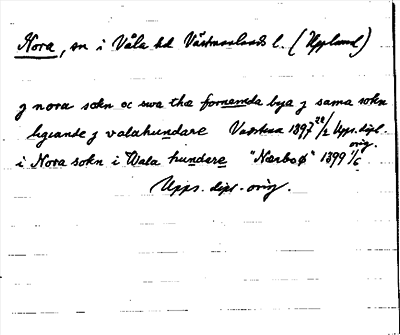 Nora, sn i Våla hd Västmanlands l. (Uppland)
j nora sokn oc swa tha fornemda bya j sama sokn
ligiande j valahundare Vastena 1397 28/2 Upps. dipl. orig.
i Nora sokn i Wala hundare "Nærboø" 1399 1/6
Upps. dipl. orig.